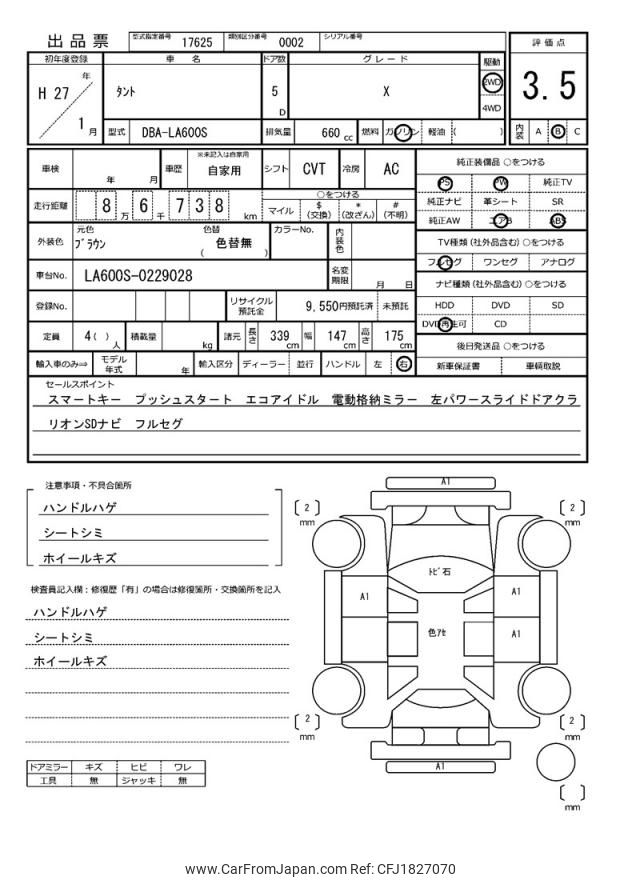 出品票 型式指定番号 17625 類別区分番号 0002 シリアル番号
初年度登録 車名 ドア数 グレード 駆動 評価点
H 27 年 1 月 タント 5 D X 2WD 4WD 3.5
型式 DBA-LA600S 排気量 660 cc 燃料 ガソリン 軽油 ( ) 内装 A B C
車検 年 月 車歴 ※未記入は自家用 自家用 シフト CVT 冷房 AC 純正装備品 ○をつける
PS PW 純正TV
走行距離 8 万 6 千 7 3 8 km ○をつける
マイル $ (交換) * (改ざん) # (不明) 純正ナビ 革シート SR
純正AW エアB ABS
外装色 元色 ブラウン 色替 ( 色替無 ) カラーNo. 内装色 TV種類 (社外品含む) ○をつける
フルセグ ワンセグ アナログ
車台No. LA600S-0229028 名変期限 月 日 ナビ種類 (社外品含む) ○をつける
登録No. リサイクル預託金 9,550円預託済 未預託 HDD DVD SD
DVD再生可 CD
定員 4 ( ) 人 積載量 kg 諸元 長さ 339 cm 幅 147 cm 高さ 175 cm 後日発送品 ○をつける
輸入車のみ⇒ モデル年式 年 輸入区分 ディーラー 並行 ハンドル 左 右 新車保証書 車輌取説
セールスポイント
スマートキー プッシュスタート エコアイドル 電動格納ミラー 左パワースライドドアクラ
リオンSDナビ フルセグ
注意事項・不具合箇所
ハンドルハゲ
シートシミ
ホイールキズ
検査員記入欄：修復歴「有」の場合は修復箇所・交換箇所を記入
ハンドルハゲ
シートシミ
ホイールキズ
ドアミラー キズ ヒビ ワレ
工具 無 ジャッキ 無
A1
2 mm
2 mm
トビ石
A1
A1
色アセ
A1
2 mm
2 mm
A1
mm
www.CarFromJapan.com Ref: CFJ1827070